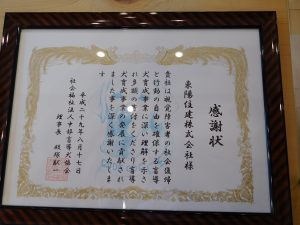 感謝状
東陽住建株式会社様
貴社は視覚障害者の社会復帰
と行動の自由を確保する盲導
犬育成事業に深い理解を示さ
れ多額の寄付をくださり盲導
犬育成事業の発展に貢献され
ました事を深く感謝いたしま
す
平成二十九年八月十七日
社会福祉法人中部盲導犬協会
理事長